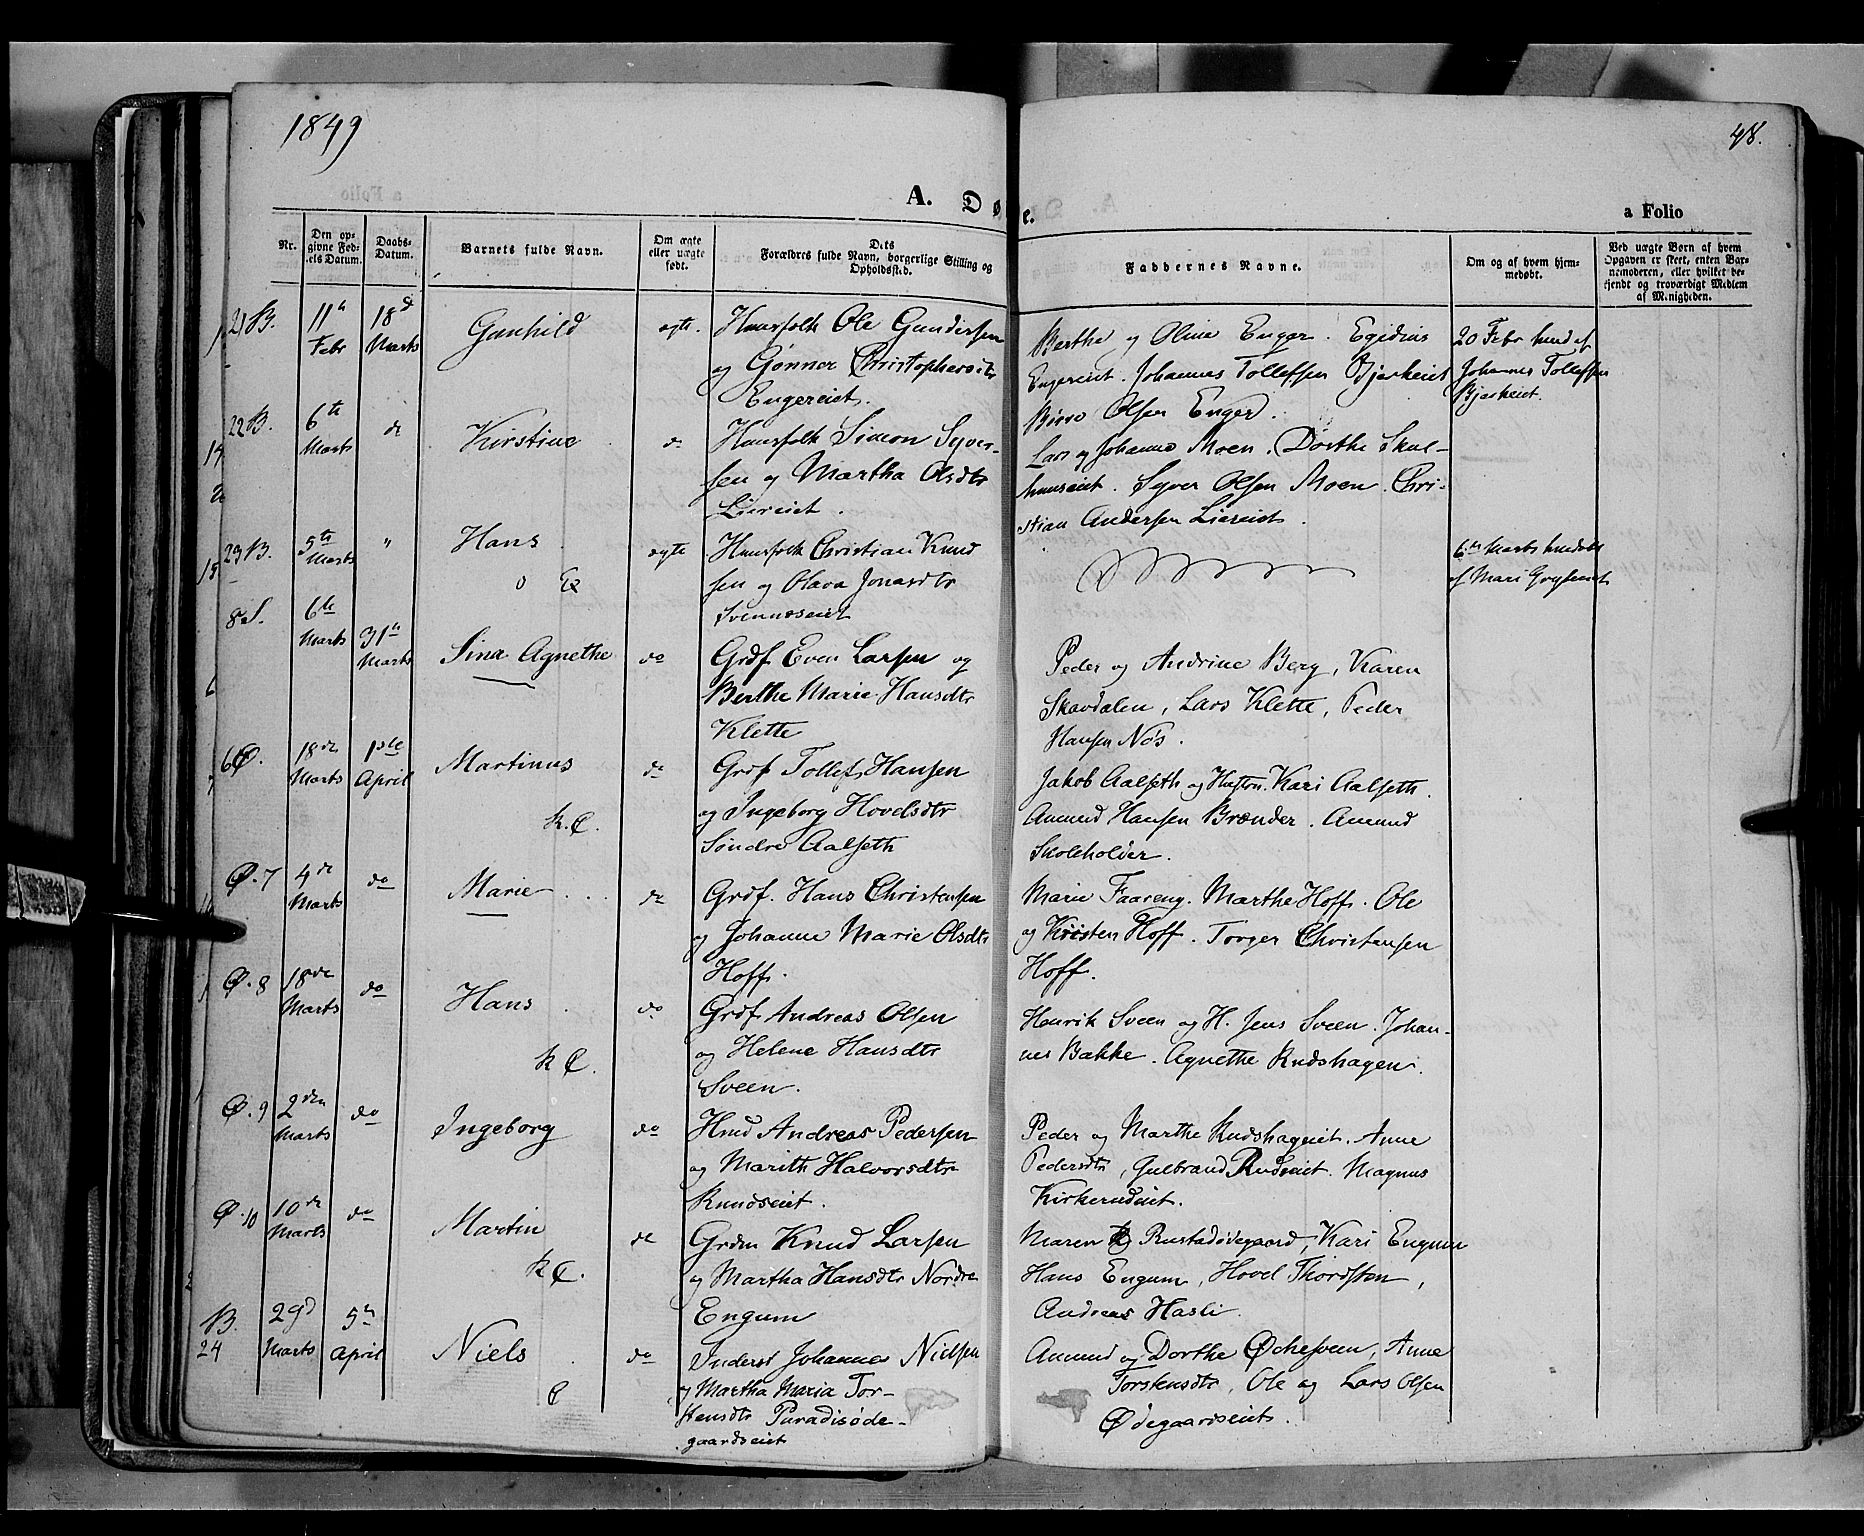 1849
48.
A. Dø
e.
a Folio
Nr.
Den op-
givne Fød-
sels Datum.
Daabs-
Datum.
Barnets fulde Navn.
Om ægte
eller uægte
født.
Dets
Forældres fulde Navn, borgerlige Stilling og
Opholdssted.
Faddernes Navne.
Om og af hvem hjem-
medøbt.
Ved uægte Børn af hvem
Opgaven er skeet, enten Bar-
nemoderen, eller hvilket be-
kjendt og troværdigt Medlem
af Menigheden.
21 B.
11te
Febr
18de
Marts
Gunhild
ægte.
Huusfolk Ole Gundersen
og Gønner Christophersdtr
Engereiet.
Berthe og Oline Enger. Egidius
Engereiet. Johannes Tollefsen Bjerkeiet
Olsen Enger.
20 Febr hmd af
Johannes Tollefsen
Bjerkeiet.
22 B.
6te
Marts
do
Kirstine
do
Huusfolk Simon Syver-
sen og Martha Olsdtr
Liereiet.
Lars og Johanne Moen. Dorthe Skul-
huuseiet. Syver Olsen Moen. Chri-
stian Andersen Liereiet.
23 B.
5te
Marts
"
Hans
ægte
Huusfolk Christian Knud
sen og Olava Jonasdtr
Svennæseiet
6te Marts hmdøbt
af Mari
8 S.
6te
Marts
31te
Marts
Sina Agnethe
do
Grdf Even Larsen og
Berthe Marie Hansdtr
Klette
Peder og Andrine Berg, Karen
Skavdalen, Lars Klette, Peder
Hansen Nøs.
6 Ø.
18de
Marts
1ste
April
Martinus
K.C.
do
Grdf Tollef Hansen
og Ingeborg Hovelsdtr
Søndre Aalseth
Jakob Aalseth og Hustru. Kari Aalseth.
Amund Hansen Brænder. Amund
Skoleholder.
Ø. 7
4de
Marts
do
Marie
do
Grdf. Hans Christensen
og Johanne Marie Olsdtr
Hoff.
Marie Faareng. Marthe Hoff. Ole
og Kristen Hoff. Torger Christensen
Hoff.
Ø. 8
18de
Marts
do
Hans
K C.
do
Grdf Andreas Olsen
og Helene Hansdtr
Sveen.
Henrik Sveen og H. Jens Sveen. Johan-
nes Bakke. Agnethe Rudshagen.
Ø. 9
2den
Marts
do
Ingeborg
do
Hmd Andreas Pedersen
og Marith Halvorsdtr
Ruudseiet.
Peder og Marthe Rudshageiet. Anne
Pedersdtr, Gulbrand Rudseiet. Magnus
Kirkerudeiet.
Ø. 10
10de
Marts
do
Martin
K C.
do
Grdm Knud Larsen
og Martha Hansdtr Nordre
Engum
Maren Rustadødegaard, Kari Engum
Hans Engum, Hovel Thordsten,
Andreas Hasli.
B.
24
29d
Marts
5te
April
Niels
C
do
Inderst Johannes Nielsen
og Martha Maria Tor-
stensdtr Paradisøde-
gaardseiet
Amund og Dorthe Øchesveen, Anne
Torstensdtr, Ole og Lars Olsen
Ødegaardseiet.